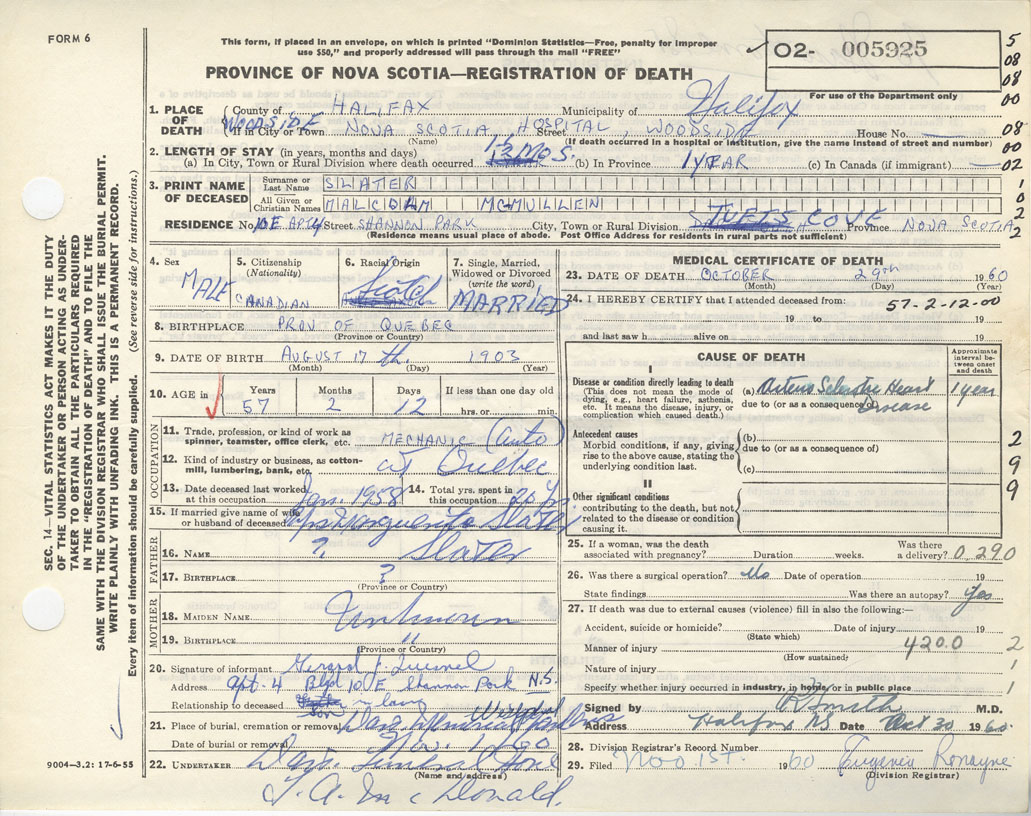 FORM 6
This form, if placed in an envelope, on which is printed "Dominion Statistics—Free, penalty for improper
use $50," and properly addressed will pass through the mail "FREE"
PROVINCE OF NOVA SCOTIA—REGISTRATION OF DEATH
✓ O2- 005925
For use of the Department only
5
08
08
00
08
00
02
1
0
2
2
1. PLACE OF DEATH
County of HALIFAX Municipality of Halifax
WOODSIDE
If in City or Town NOVA SCOTIA HOSPITAL, WOODSIDE Street House No.
(Name) (If death occurred in a hospital or institution, give the name instead of street and number)
2. LENGTH OF STAY (in years, months and days)
(a) In City, Town or Rural Division where death occurred MOS. (b) In Province 1 YEAR (c) In Canada (if immigrant)
3. PRINT NAME OF DECEASED
Surname or Last Name SLATER
All Given or Christian Names MALCOLM MCMULLEN
RESIDENCE No. 10E APT 4 Street SHANNON PARK City, Town or Rural Division TUFTS COVE Province NOVA SCOTIA
(Residence means usual place of abode. Post Office Address for residents in rural parts not sufficient)
4. Sex MALE
5. Citizenship (Nationality) CANADIAN
6. Racial Origin
7. Single, Married, Widowed or Divorced (write the word) MARRIED
8. BIRTHPLACE PROV OF QUEBEC
(Province or Country)
9. DATE OF BIRTH AUGUST 17 th. 1903
(Month) (Day) (Year)
10. AGE in Years Months Days If less than one day old
57 2 12 hrs. or min.
OCCUPATION
11. Trade, profession or kind of work as spinner, teamster, office clerk, etc. MECHANIC (auto)
12. Kind of industry or business, as cotton-mill, lumbering, bank, etc. at Quebec
13. Date deceased last worked at this occupation Jan. 1958
14. Total yrs. spent in this occupation
15. If married give name of wife or husband of deceased Mrs Marguerite Slater
FATHER
16. NAME ? Slater
17. BIRTHPLACE ?
(Province or Country)
MOTHER
18. MAIDEN NAME Unknown
19. BIRTHPLACE "
(Province or Country)
20. Signature of informant Gerard J.
Address Apt. 4 Bldg 10 E Shannon Park N.S.
Relationship to deceased son in law
21. Place of burial, cremation or removal
Date of burial or removal Nov. 1 60
22. UNDERTAKER Funeral Home
(Name and address)
J. A. McDonald.
9004—3.2: 17-6-55
MEDICAL CERTIFICATE OF DEATH
23. DATE OF DEATH OCTOBER 29th 1960
(Month) (Day) (Year)
24. I HEREBY CERTIFY that I attended deceased from: 57-2-12-00
19 to 19
and last saw h alive on 19
CAUSE OF DEATH
Approximate interval between onset and death
I
Disease or condition directly leading to death
(This does not mean the mode of dying, e.g., heart failure, asthenia, etc. It means the disease, injury, or complication which caused death.)
(a) Arterio Sclerotic Heart Disease 1 year
due to (or as a consequence of)
Antecedent causes
Morbid conditions, if any, giving rise to the above cause, stating the underlying condition last.
(b)
due to (or as a consequence of)
(c)
2
9
9
II
Other significant conditions
contributing to the death, but not related to the disease or condition causing it.
25. If a woman, was the death associated with pregnancy? Duration weeks. Was there a delivery? 0290
26. Was there a surgical operation? No Date of operation 19
State findings Was there an autopsy? Yes
27. If death was due to external causes (violence) fill in also the following:—
Accident, suicide or homicide? Date of injury 19
(State which)
Manner of injury 4200 2
(How sustained)
Nature of injury 1
Specify whether injury occurred in industry, in home, or in public place 1
Signed by Smith M.D.
Address Halifax NS Date Oct 30 1960
28. Division Registrar's Record Number
29. Filed Nov 1st. 1960 Eugenia Ronayne
(Division Registrar)
SEC. 14—VITAL STATISTICS ACT MAKES IT THE DUTY
OF THE UNDERTAKER OR PERSON ACTING AS UNDER-
TAKER TO OBTAIN ALL THE PARTICULARS REQUIRED
IN THE "REGISTRATION OF DEATH" AND TO FILE THE
SAME WITH THE DIVISION REGISTRAR WHO SHALL ISSUE THE BURIAL PERMIT.
WRITE PLAINLY WITH UNFADING INK. THIS IS A PERMANENT RECORD.
Every item of information should be carefully supplied. (See reverse side for instructions.)